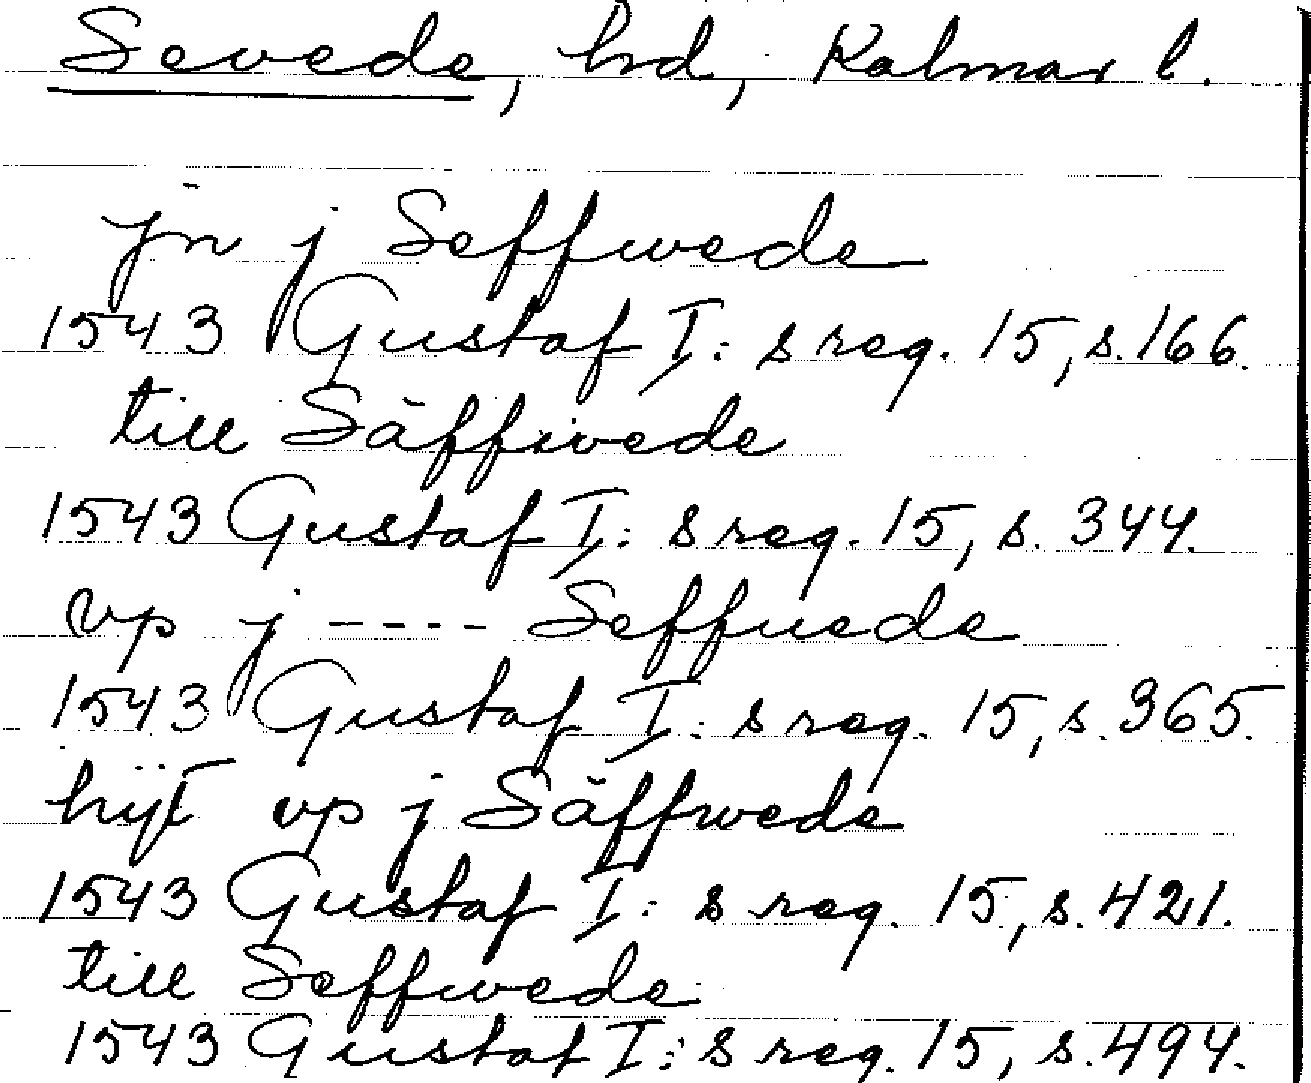 Sevede, hd, Kalmar l.
jn j Seffwede
1543 Gustaf I:s reg. 15, s. 166.
till Säffwede
1543 Gustaf I:s reg. 15, s. 344.
vp j ---- Seffuede
1543 Gustaf I:s reg. 15, s. 365.
hijt vp j Säffwede
1543 Gustaf I:s reg. 15, s. 421.
till Seffwede
1543 Gustaf I:s reg. 15, s. 494.